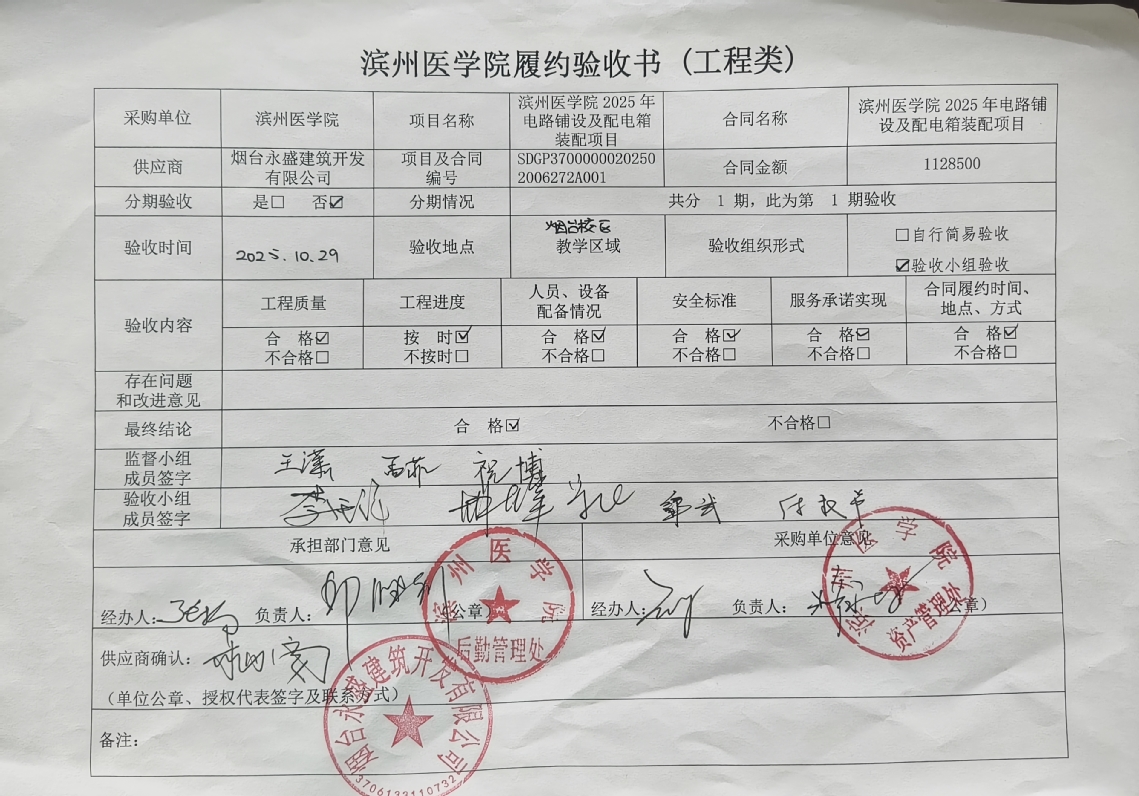 滨州医学院履约验收书（工程类）
采购单位
滨州医学院
项目名称
滨州医学院 2025 年
电路铺设及配电箱
装配项目
合同名称
滨州医学院 2025 年电路铺
设及配电箱装配项目
供应商
烟台永盛建筑开发
有限公司
项目及合同
编号
SDGP3700000020250
2006272A001
合同金额
1128500
分期验收
是□ 否☑
分期情况
共分 1 期，此为第 1 期验收
验收时间
2025.10.29
验收地点
烟台校区
教学区域
验收组织形式
□自行简易验收
☑验收小组验收
验收内容
工程质量
工程进度
人员、设备
配备情况
安全标准
服务承诺实现
合同履约时间、
地点、方式
合 格☑
不合格□
按 时☑
不按时□
合 格☑
不合格□
合 格☑
不合格□
合 格☑
不合格□
合 格☑
不合格□
存在问题
和改进意见
最终结论
合 格☑
不合格□
监督小组
成员签字
王潇 孟菲 祝博
验收小组
成员签字
承担部门意见
采购单位意见
经办人:
负责人:
（公章）
经办人:
负责人:
（公章）
滨州医学院
后勤管理处
滨州医学院
资产管理处
供应商确认:
（单位公章、授权代表签字及联系方式）
烟台永盛建筑开发有限公司
备注: